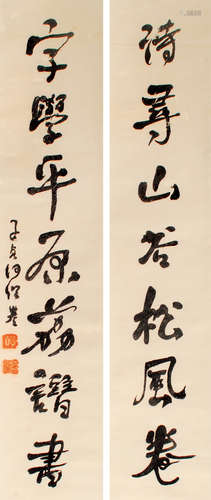 詩尋山谷松風卷
字學平原荔譜書
子貞何紹基